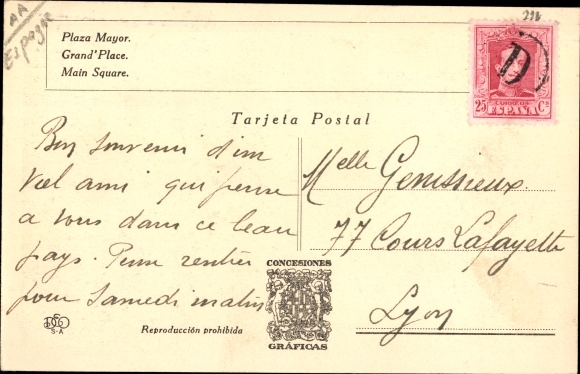 AA
Espagne
Plaza Mayor.
Grand'Place.
Main Square.
25 CORREOS Cs
ESPAÑA
D
Tarjeta Postal
Bon Souvenir d'un
Vieil ami qui pense
a vous dans ce beau
pays. Pense rentrer
pour Samedi matin
Melle Genissieux
77 Cours Lafayette
Lyon
CONCESIONES
GRÁFICAS
S·A
Reproducción prohibida